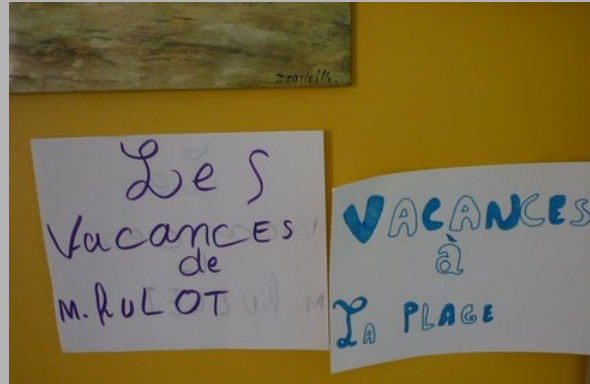 Les
Vacances
de
M. HULOT
VACANCES
à
LA PLAGE